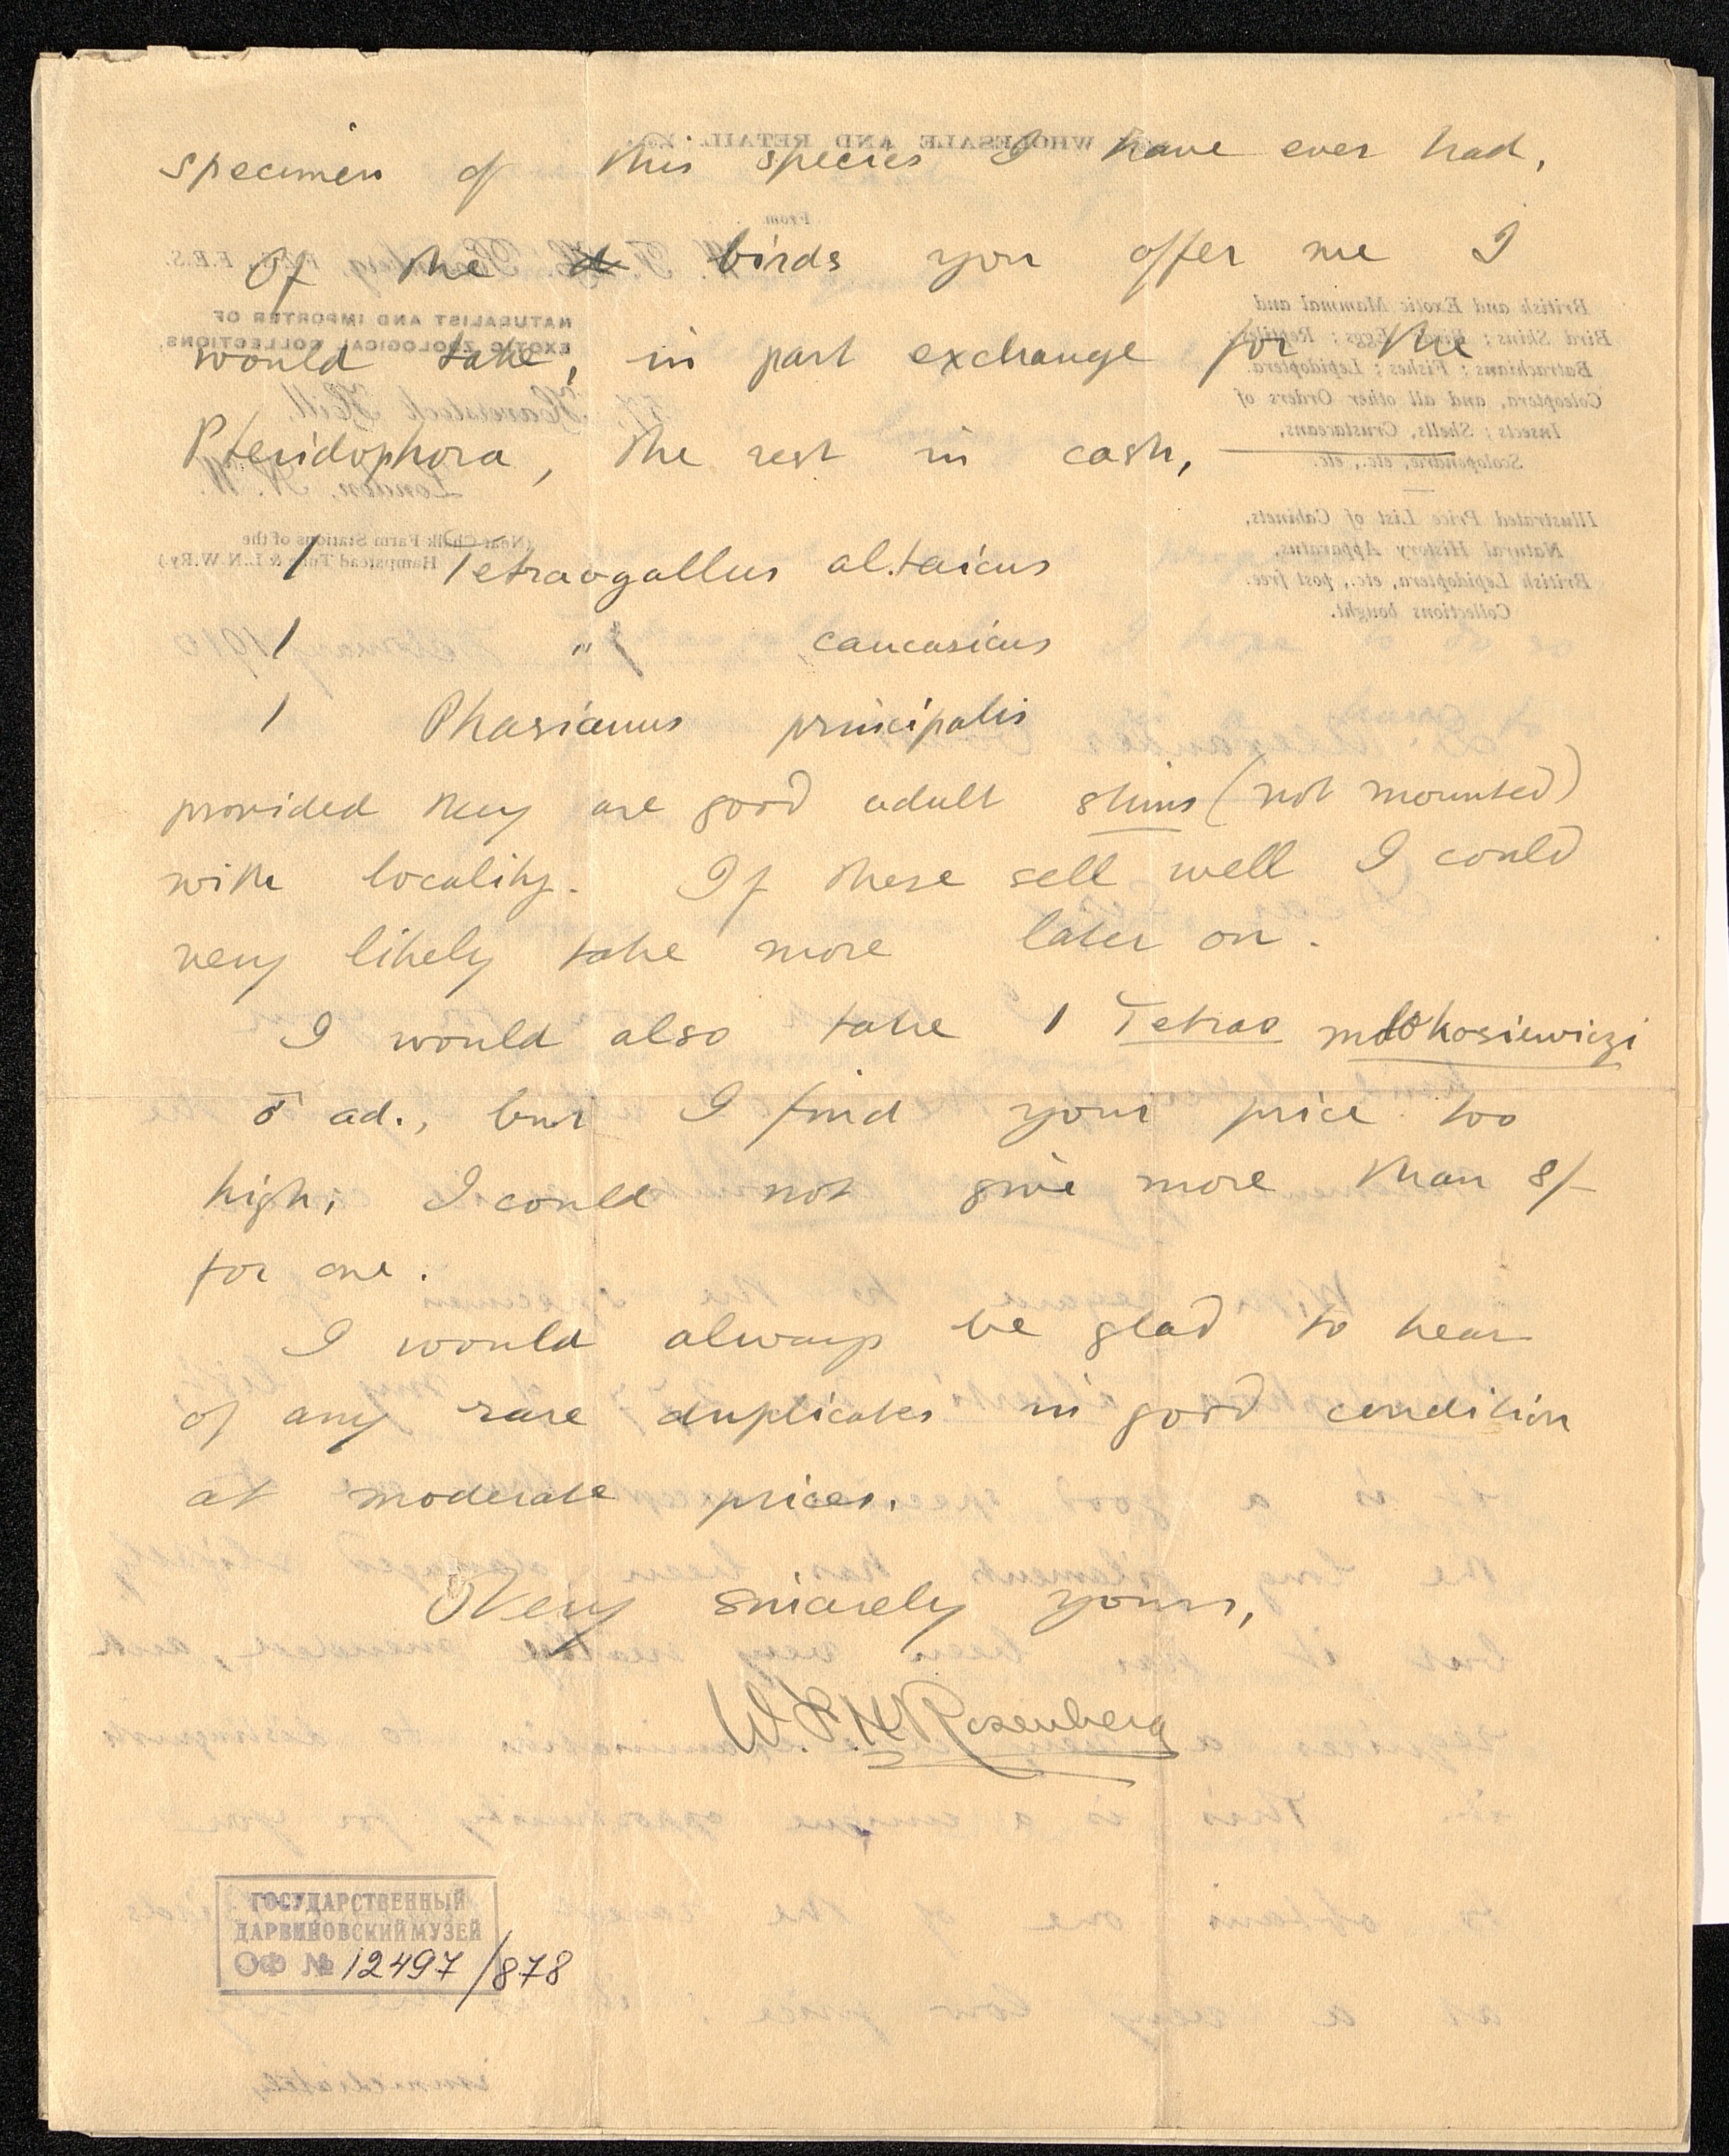 specimen of this species I have ever had,
Of the birds you offer me I
would take, in part exchange for the
Pteridophora, the rest in cash,
1 Tetraogallus altaicus
1 " caucasicus
1 Phasianus principalis
provided they are good adult skins (not mounted)
with locality. If these sell well I could
very likely take more later on.
I would also take 1 Tetrao mlokosiewiczi
♂ ad., but I find your price too
high; I could not give more than 8/-
for one.
I would always be glad to hear
of any rare duplicates in good condition
at moderate prices.
Very sincerely yours,
W. F. H. Rosenberg
ГОСУДАРСТВЕННЫЙ
ДАРВИНОВСКИЙ МУЗЕЙ
ОФ № 12497/878